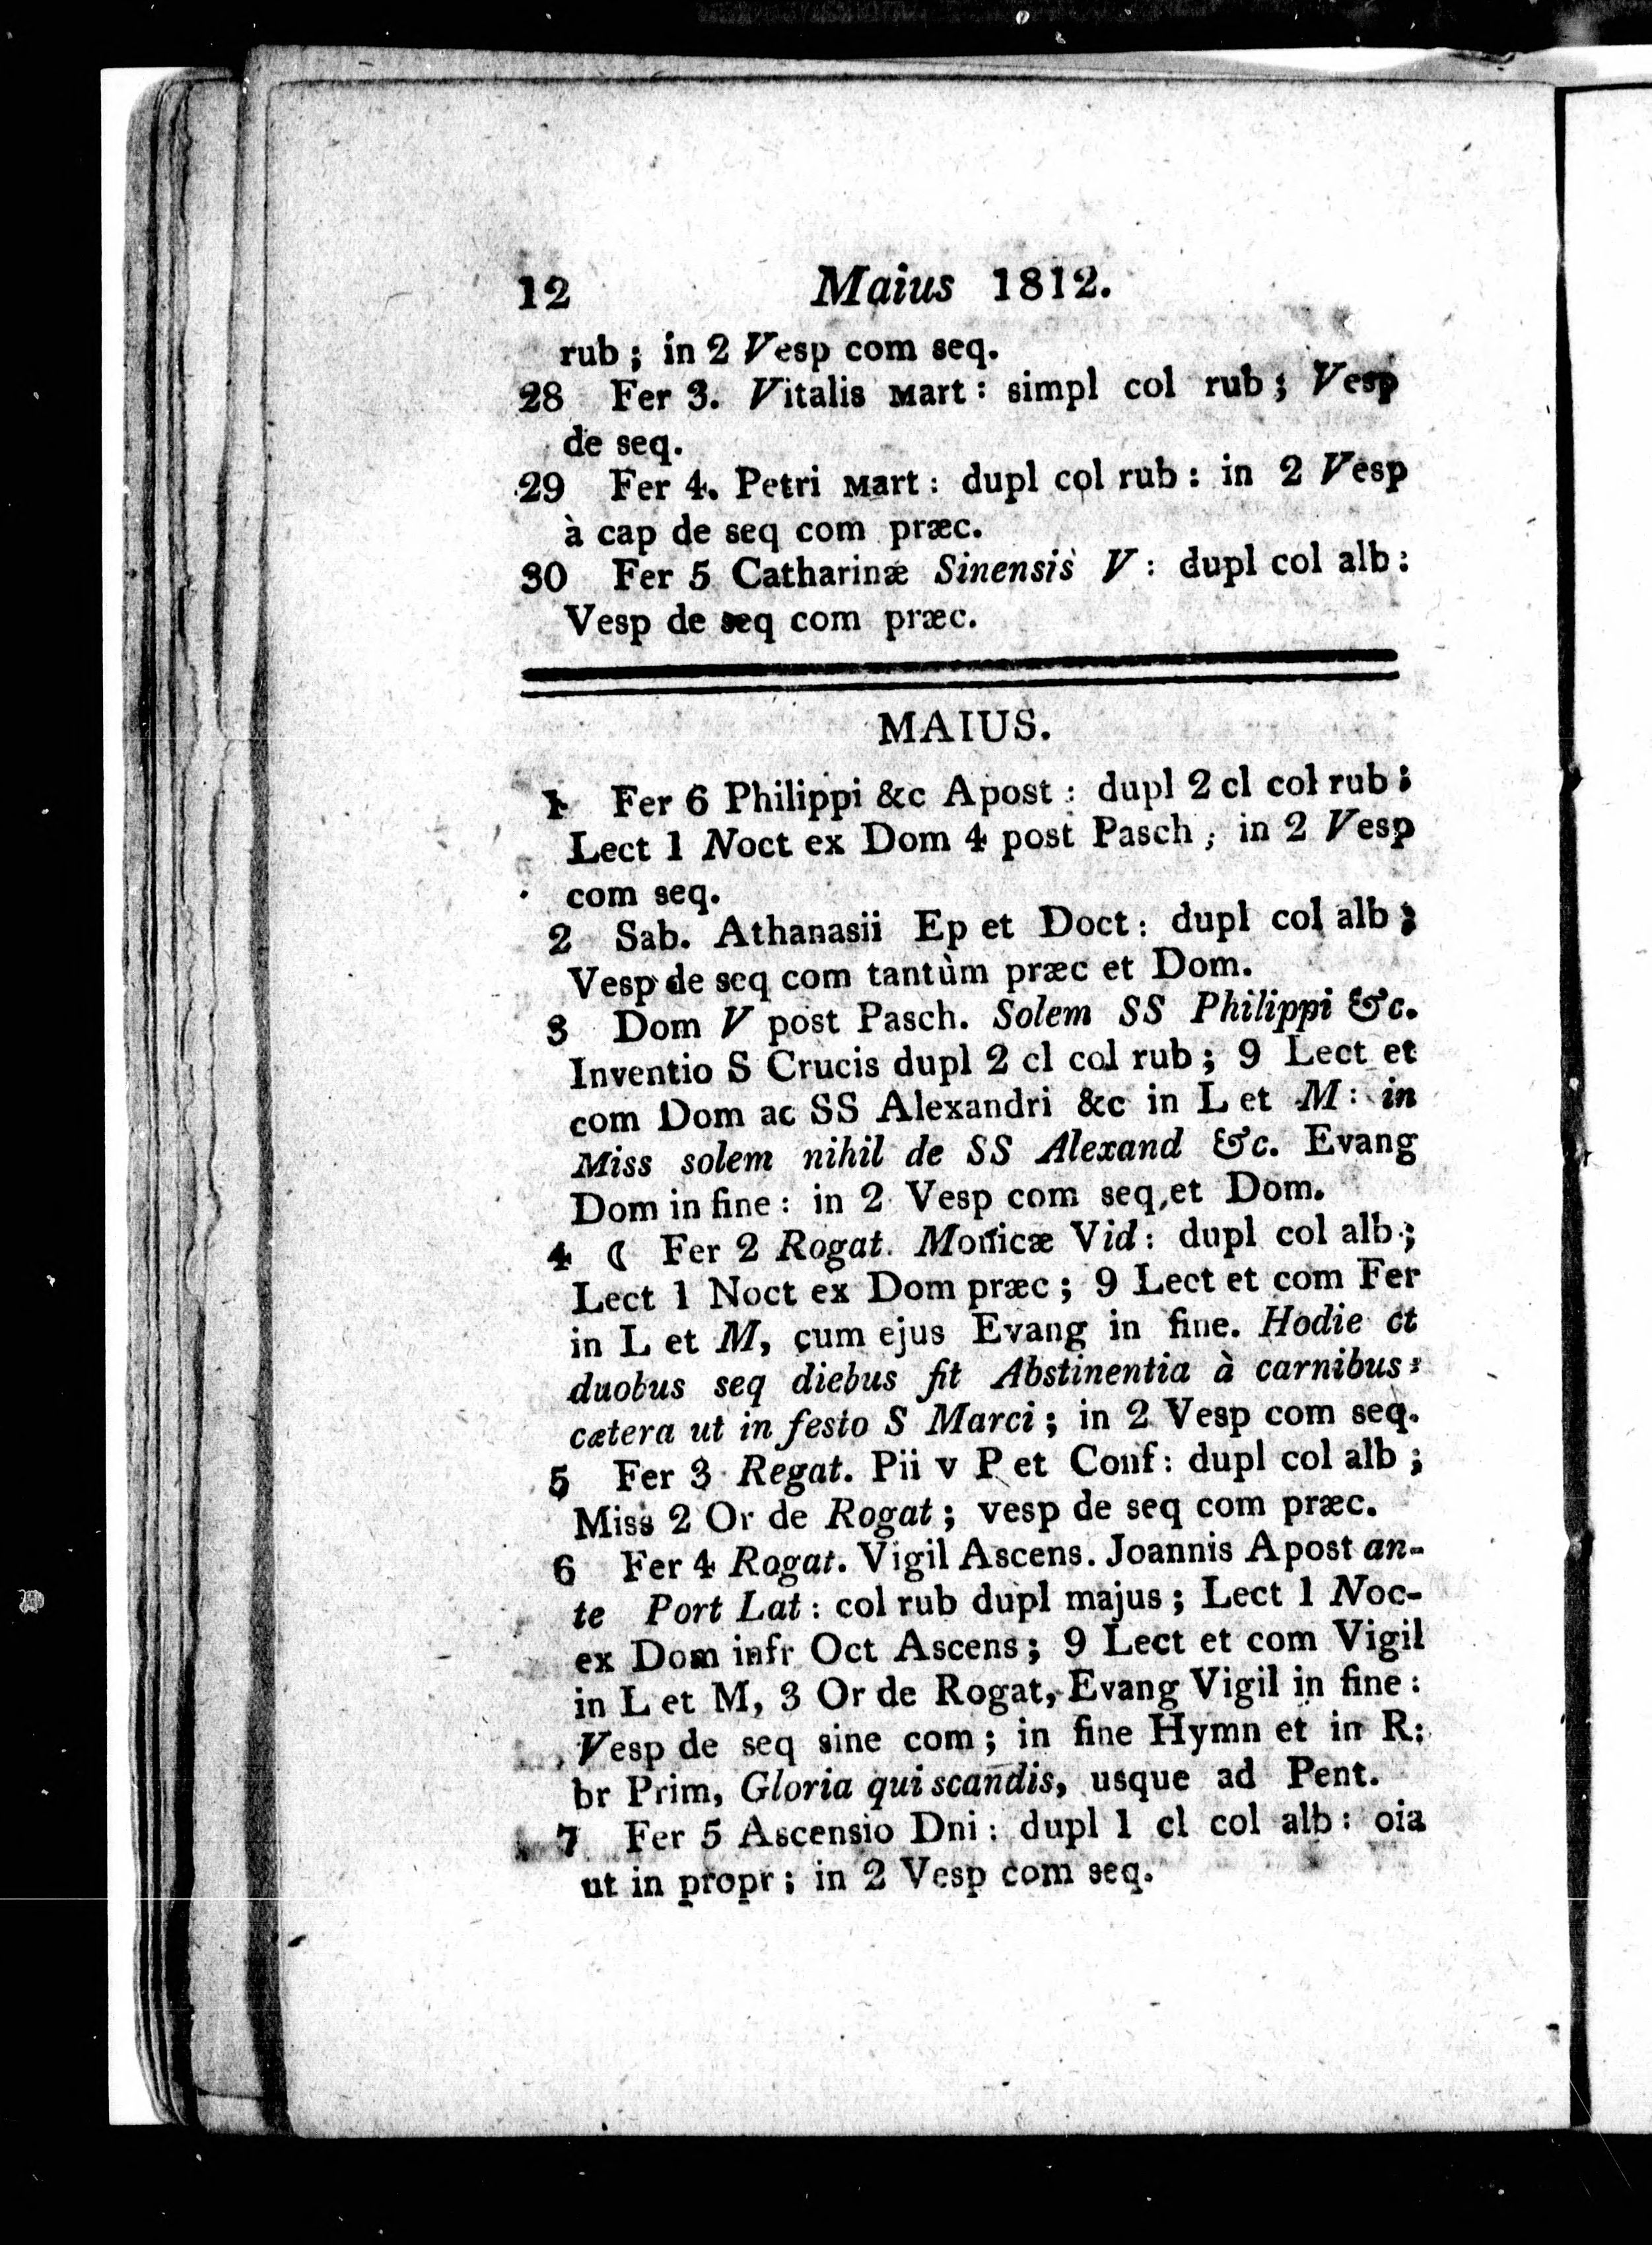 12 Maius 1812.
rub ; in 2 Vesp com seq.
28 Fer 3. Vitalis Mart : simpl col rub ; Vesp
de seq.
29 Fer 4. Petri Mart : dupl col rub : in 2 Vesp
à cap de seq com præc.
30 Fer 5 Catharinæ Sinensis V : dupl col alb :
Vesp de seq com præc.
MAIUS.
1 Fer 6 Philippi &c Apost : dupl 2 cl col rub ;
Lect 1 Noct ex Dom 4 post Pasch ; in 2 Vesp
com seq.
2 Sab. Athanasii Ep et Doct : dupl col alb ;
Vesp de seq com tantùm præc et Dom.
3 Dom V post Pasch. Solem SS Philippi &c.
Inventio S Crucis dupl 2 cl col rub ; 9 Lect et
com Dom ac SS Alexandri &c in L et M : in
Miss solem nihil de SS Alexand &c. Evang
Dom in fine : in 2 Vesp com seq, et Dom.
4 ☾ Fer 2 Rogat. Monicæ Vid : dupl col alb ;
Lect 1 Noct ex Dom præc ; 9 Lect et com Fer
in L et M, cum ejus Evang in fine. Hodie et
duobus seq diebus fit Abstinentia à carnibus :
cætera ut in festo S Marci ; in 2 Vesp com seq.
5 Fer 3 Regat. Pii v P et Conf : dupl col alb ;
Miss 2 Or de Rogat ; vesp de seq com præc.
6 Fer 4 Rogat. Vigil Ascens. Joannis Apost an-
te Port Lat : col rub dupl majus ; Lect 1 Noc-
ex Dom infr Oct Ascens ; 9 Lect et com Vigil
in L et M, 3 Or de Rogat, Evang Vigil in fine :
Vesp de seq sine com ; in fine Hymn et in R :
br Prim, Gloria qui scandis, usque ad Pent.
7 Fer 5 Ascensio Dni : dupl 1 cl col alb : oia
ut in propr ; in 2 Vesp com seq.